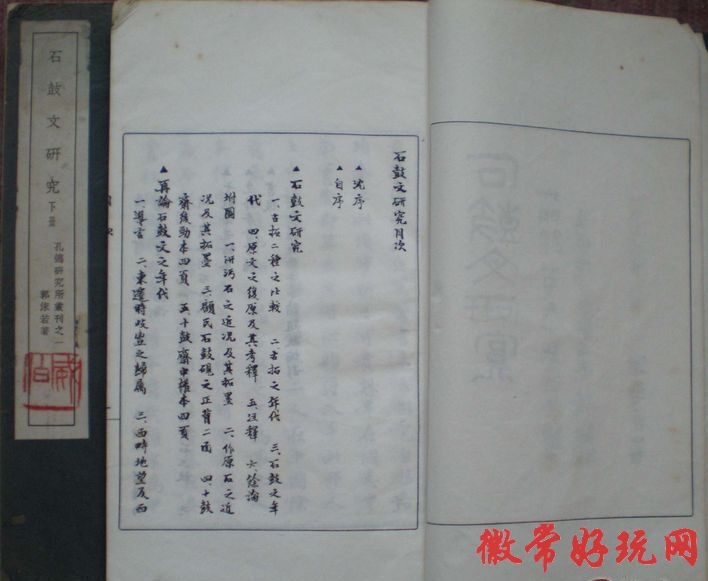 石鼓文研究 下冊
孔德研究所叢刊之一
郭沫若著
石鼓文研究目次
▲沈序
▲自序
▲石鼓文研究
一、古拓二種之比較 二、古拓之年代 三、石鼓之年
代 四、原文之復原及其考釋 五、注釋 六、餘論
坿圖 一、汧沔石之近況及其拓墨 二、作原石之近
況及其拓墨 三、顧氏石鼓硯文正背二面 四、十鼓
齋後勁本四頁 五、十鼓齋中權本四頁
▲再論石鼓文之年代
一、導言 二、東遷時岐豐之歸屬 三、西畤地望及西
徽常好玩网